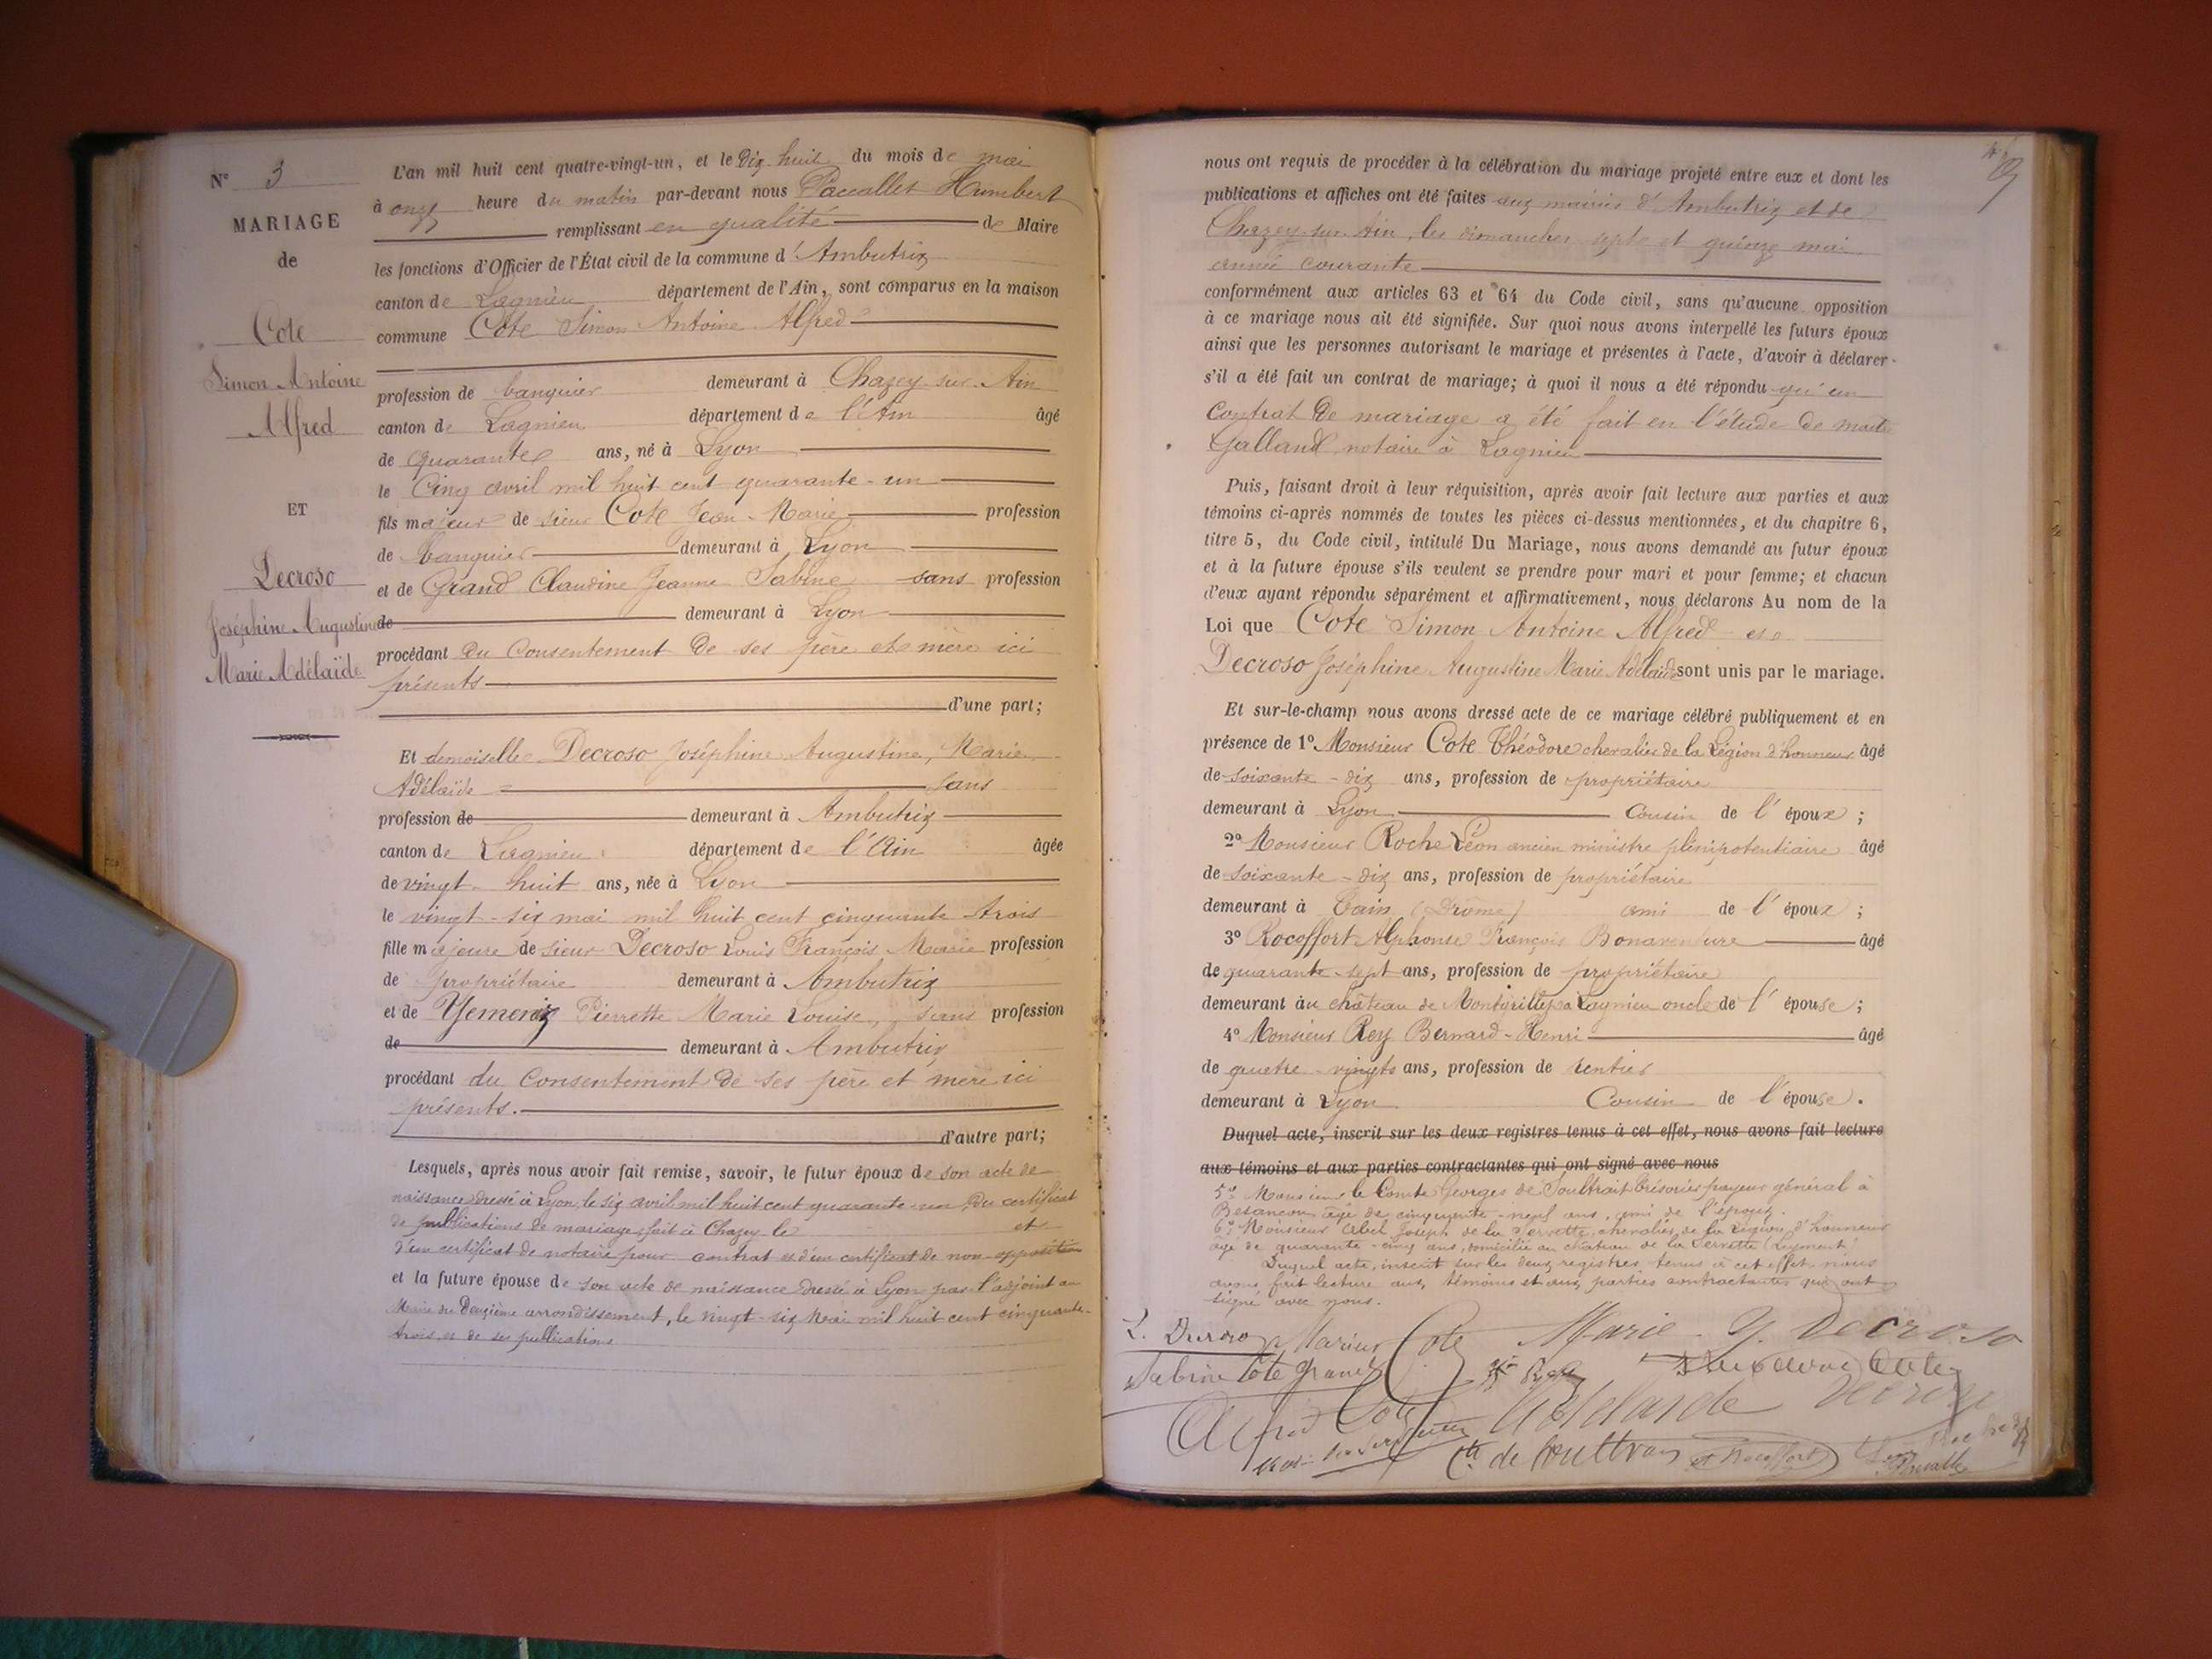 N° 3
MARIAGE
de
Cote
Simon Antoine
Alfred
ET
Decroso
Joséphine Augustine
Marie Adélaïde
L'an mil huit cent quatre-vingt-un, et le Dix huit du mois de mai
à onze heure du matin par-devant nous Paccallet Humbert
remplissant en qualité de Maire
les fonctions d'Officier de l'État civil de la commune d'Ambutrix
canton de Lagnieu département de l'Ain, sont comparus en la maison
commune Cote Simon Antoine Alfred
profession de banquier demeurant à Chazey-sur-Ain
canton de Lagnieu département de l'Ain âgé
de quarante ans, né à Lyon
le Cinq avril mil huit cent quarante-un
fils majeur de sieur Cote Jean-Marie profession
de banquier demeurant à Lyon
et de Grand Claudine Jeanne Sabine sans profession
de demeurant à Lyon
procédant du Consentement de ses père et mère ici
présents
d'une part;
Et demoiselle Decroso Joséphine Augustine, Marie
Adélaïde sans
profession de demeurant à Ambutrix
canton de Lagnieu département de l'Ain âgée
de vingt-huit ans, née à Lyon
le vingt-six mai mil huit cent cinquante trois
fille majeure de sieur Decroso Louis François Marie profession
de propriétaire demeurant à Ambutrix
et de Yemeniz Pierrette Marie Louise, sans profession
de demeurant à Ambutrix
procédant du Consentement de ses père et mère ici
présents.
d'autre part;
Lesquels, après nous avoir fait remise, savoir, le futur époux de son acte de
naissance dressé à Lyon, le six avril mil huit cent quarante-un, Du certificat
de publications de mariage fait à Chazey le et
d'un certificat de notaire pour contrat et d'un certificat de non-opposition
et la future épouse de son acte de naissance dressé à Lyon par l'adjoint au
Maire du Deuxième arrondissement, le vingt-six Mai mil huit cent cinquante-
trois, et de ses publications
nous ont requis de procéder à la célébration du mariage projeté entre eux et dont les
publications et affiches ont été faites aux mairies d'Ambutrix et de
Chazey-sur-Ain, les dimanches sept et quinze mai
année courante
conformément aux articles 63 et 64 du Code civil, sans qu'aucune opposition
à ce mariage nous ait été signifiée. Sur quoi nous avons interpellé les futurs époux
ainsi que les personnes autorisant le mariage et présentes à l'acte, d'avoir à déclarer
s'il a été fait un contrat de mariage; à quoi il nous a été répondu qu'un
Contrat de mariage a été fait en l'étude de maître
Galland notaire à Lagnieu
Puis, faisant droit à leur réquisition, après avoir fait lecture aux parties et aux
témoins ci-après nommés de toutes les pièces ci-dessus mentionnées, et du chapitre 6,
titre 5, du Code civil, intitulé Du Mariage, nous avons demandé au futur époux
et à la future épouse s'ils veulent se prendre pour mari et pour femme; et chacun
d'eux ayant répondu séparément et affirmativement, nous déclarons Au nom de la
Loi que Cote Simon Antoine Alfred et
Decroso Joséphine Augustine Marie Adélaïde sont unis par le mariage.
Et sur-le-champ nous avons dressé acte de ce mariage célébré publiquement et en
présence de 1° Monsieur Cote Théodore chevalier de la Légion d'honneur âgé
de soixante-dix ans, profession de propriétaire
demeurant à Lyon Cousin de l'époux;
2° Monsieur Roche Léon ancien ministre plénipotentiaire âgé
de soixante-dix ans, profession de propriétaire
demeurant à Tain (Drôme) ami de l'époux;
3° Rocoffort Alphonse François Bonaventure âgé
de quarante-sept ans, profession de propriétaire
demeurant au château de à Lagnieu oncle de l'épouse;
4° Monsieur Rey Bernard-Henri âgé
de quatre-vingts ans, profession de rentier
demeurant à Lyon Cousin de l'épouse.
Duquel acte, inscrit sur les deux registres tenus à cet effet, nous avons fait lecture
aux témoins et aux parties contractantes qui ont signé avec nous
5° Monsieur le Comte Georges de Soultrait trésorier payeur général à
Besançon âgé de cinquante-neuf ans, ami de l'époux.
6° Monsieur Abel Joseph de la Servette chevalier de la Légion d'honneur
âgé de quarante-cinq ans, domicilié au château de la Servette (Leyment)
Duquel acte, inscrit sur les deux registres tenus à cet effet, nous
avons fait lecture aux témoins et aux parties contractantes qui ont
signé avec nous.
L. Decroso Marius Cote Marie Y. Decroso
Sabine Cote Grand Rey Théodore Cote
Alfred Cote Adélaïde Decroso
de la Servette Cte de Soultrait Rocoffort Léon Roche
Paccallet